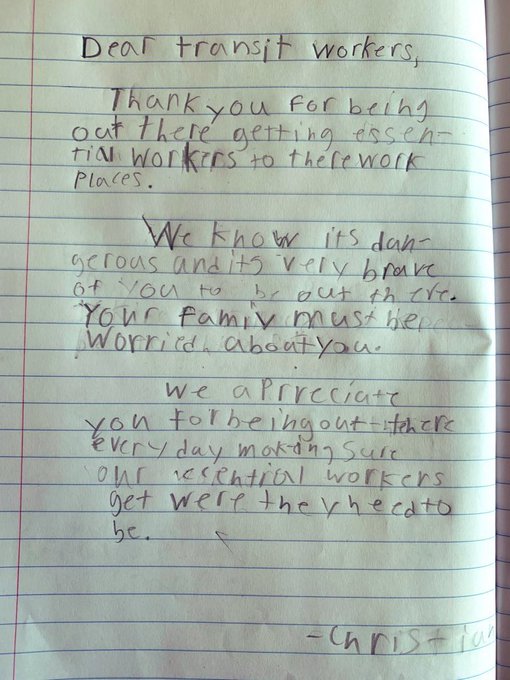 Dear transit workers,
Thank you for being
out there getting essen-
tial workers to there work
places.
We know its dan-
gerous and its very brave
of you to be out there.
Your famiy must be
worried about you.
We aprreciate
you for being out there
every day making sure
our essential workers
get were they need to
be.
-Christian